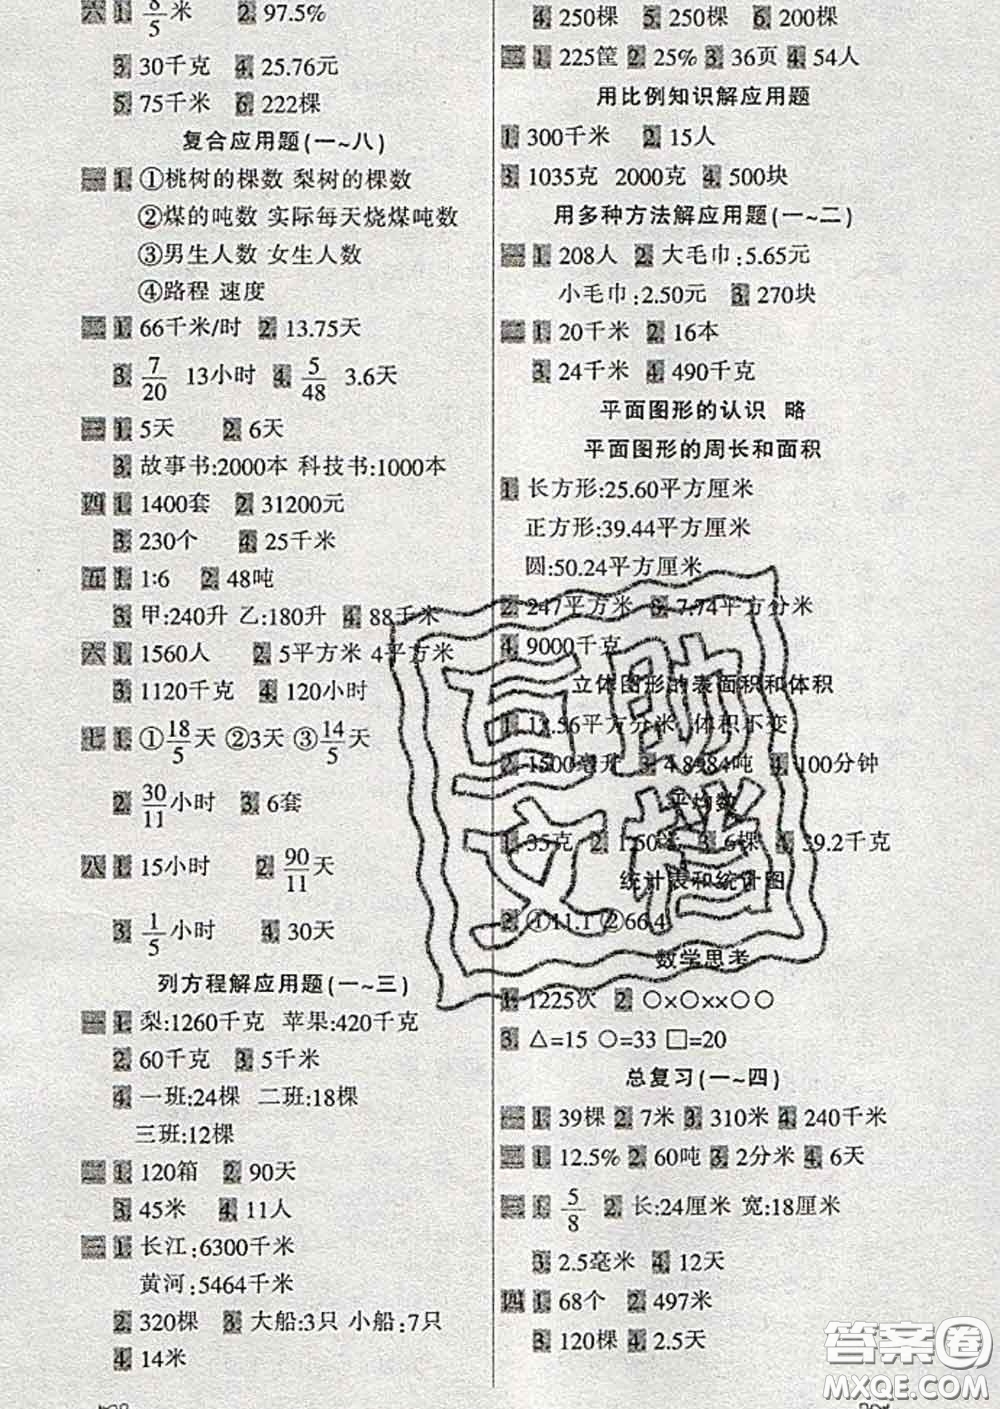 六 1. 8/5米 2. 97.5%
3. 30千克 4. 25.76元
5. 75千米 6. 222棵
复合应用题(一~八)
一 1. ①桃树的棵数 梨树的棵数
②煤的吨数 实际每天烧煤吨数
③男生人数 女生人数
④路程 速度
二 1. 66千米/时 2. 13.75天
3. 7/20 13小时 4. 5/48 3.6天
三 1. 5天 2. 6天
3. 故事书:2000本 科技书:1000本
四 1. 1400套 2. 31200元
3. 230个 4. 25千米
五 1. 1:6 2. 48吨
3. 甲:240升 乙:180升 4. 88千米
六 1. 1560人 2. 5平方米 4平方米
3. 1120千克 4. 120小时
七 1. ①18/5天 ②3天 ③14/5天
2. 30/11小时 3. 6套
八 1. 15小时 2. 90/11天
3. 1/5小时 4. 30天
列方程解应用题(一~三)
一 1. 梨:1260千克 苹果:420千克
2. 60千克 3. 5千米
4. 一班:24棵 二班:18棵
三班:12棵
二 1. 120箱 2. 90天
3. 45米 4. 11人
三 1. 长江:6300千米
黄河:5464千米
2. 320棵 3. 大船:3只 小船:7只
4. 14米
4. 250棵 5. 250棵 6. 200棵
三 1. 225筐 2. 25% 3. 36页 4. 54人
用比例知识解应用题
1. 300千米 2. 15人
3. 1035克 2000克 4. 500块
用多种方法解应用题(一~二)
一 1. 208人 2. 大毛巾:5.65元
小毛巾:2.50元 3. 270块
二 1. 20千米 2. 16本
3. 24千米 4. 490千克
平面图形的认识 略
平面图形的周长和面积
1. 长方形:25.60平方厘米
正方形:39.44平方厘米
圆:50.24平方厘米
2. 247平方米 3. 7.74平方分米
4. 9000千克
立体图形的表面积和体积
1. 12.56平方分米 体积不变
2. 1500毫升 3. 4.8984吨 4. 100分钟
平均数
1. 35克 2. 3. 6棵 4. 39.2千克
统计表和统计图
2. ①11.1 ②66.4
数学思考
1. 1225次 2. ○×○××○○
3. △=15 ○=33 □=20
总复习(一~四)
一 1. 39棵 2. 7米 3. 310米 4. 240千米
二 1. 12.5% 2. 60吨 3. 2分米 4. 6天
三 1. 5/8 2. 长:24厘米 宽:18厘米
3. 2.5毫米 4. 12天
四 1. 68个 2. 497米
3. 120棵 4. 2.5天
互助
文档
答案圈
MXQE.COM